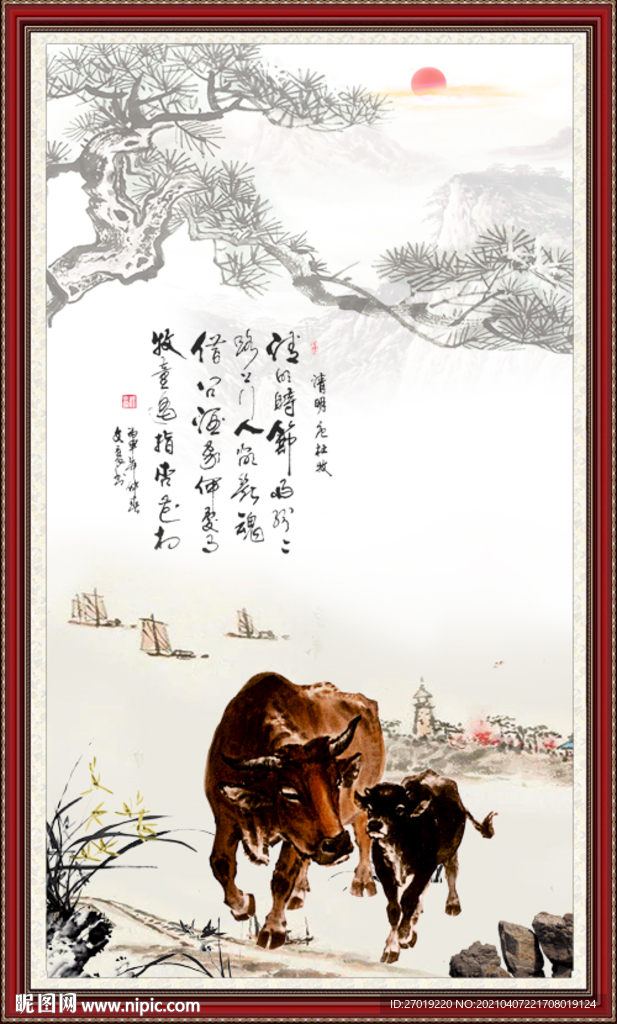 清明 唐 杜牧
清明時節雨紛〻
路上行人欲斷魂
借问酒家何處有
牧童遙指杏花村
丙申年仲春
昵图网 www.nipic.com
ID:27019220 NO:20210407221708019124